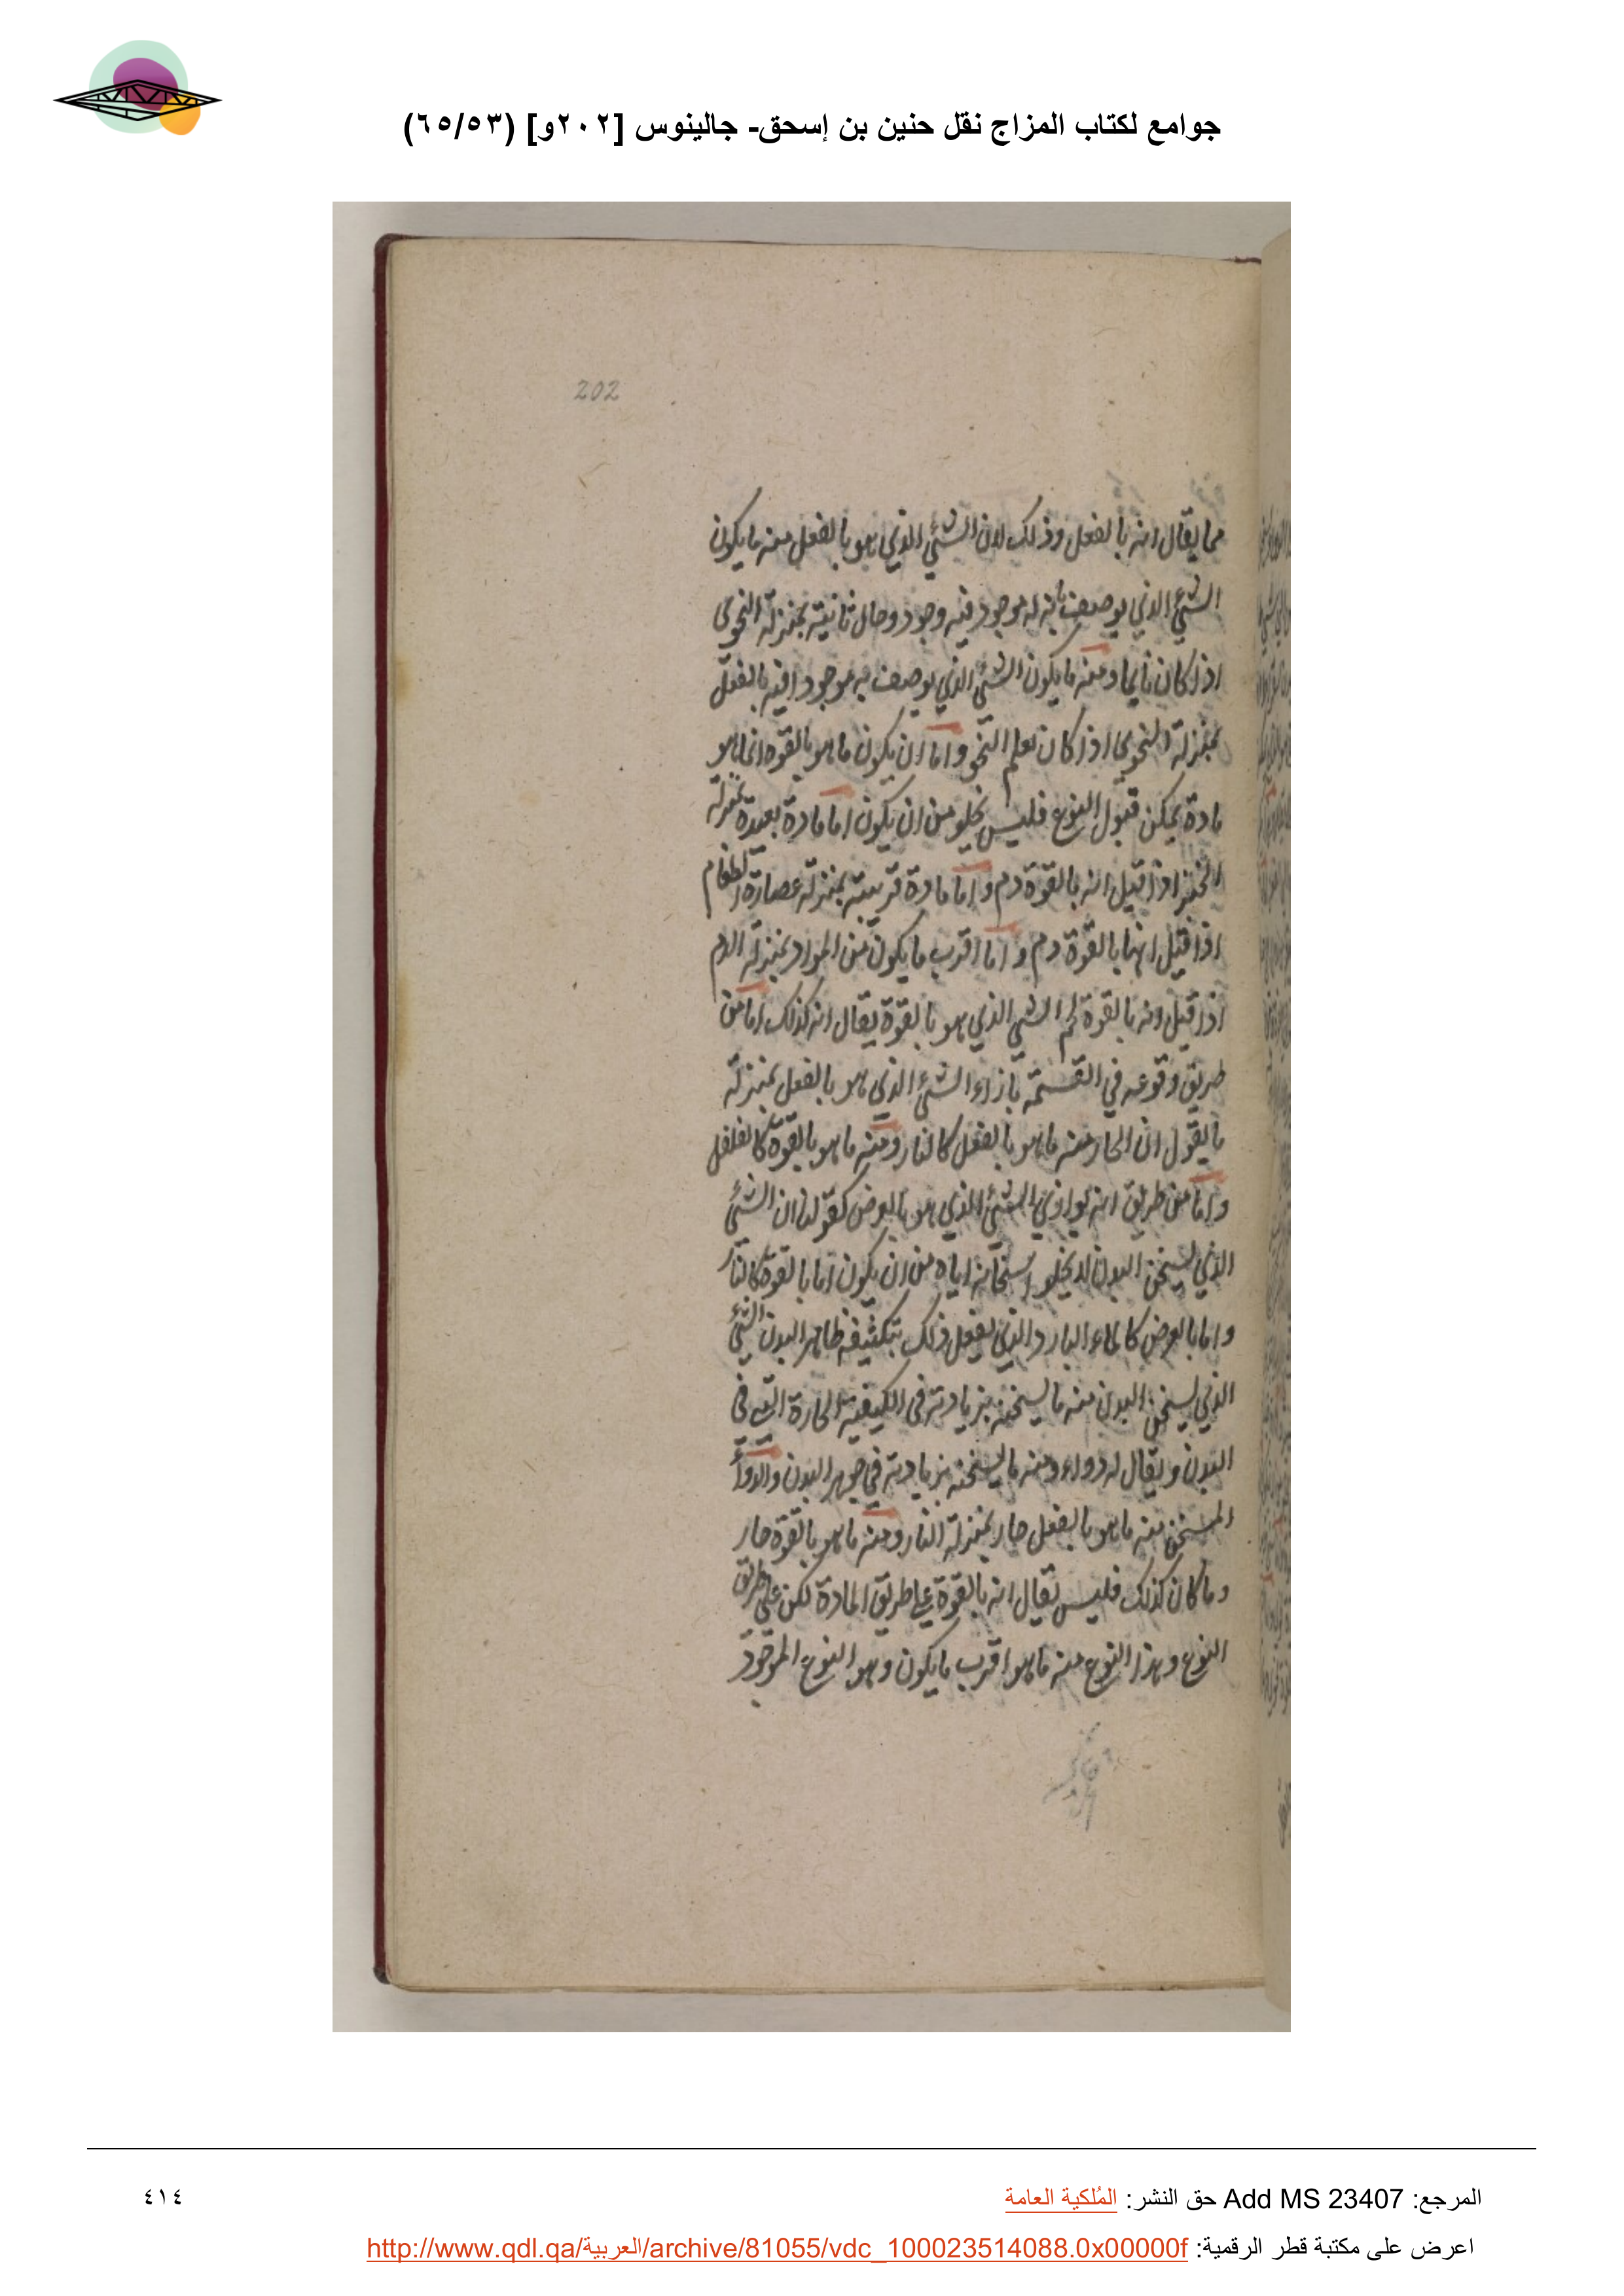 جوامع لكتاب المزاج نقل حنين بن إسحق- جالينوس [٢٠٢و] (٦٥/٥٣)
202
مما يقال انه بالفعل وذلك لان الشئ الذي هو بالفعل منه ما يكون
الشئ الذي يوصف بانه له موجود فيه وجود وحال ثانية بمنزلة النحوى
اذا كان نايما ومنه ما يكون الشئ الذي يوصف به موجودا فيه بالفعل
بمنزلة النحوى اذا كان يعلم النحو واما ان يكون ما هو بالقوه انما هو
مادة يمكن قبول النوع فليس يخلو من ان يكون اما مادة بعيدة بمنزلة
الخبز اذا قيل انه بالقوة دم واما مادة قريبة بمنزلة عصارة الطعام
اذا قيل انها بالقوة دم واما اقرب ما يكون من المواد بمنزلة الدم
اذا قيل انه بالقوة لحم الشئ الذي هو بالقوة يقال انه كذلك اما من
طريق وقوعه في القسمة بازاء الشئ الذي هو بالفعل بمنزلة
ما يقول ان الحار منه ما هو بالفعل كالنار ومنه ما هو بالقوة كالفلفل
واما من طريق انه يوازي الشئ الذي هو بالعرض كقولنا ان الشئ
الذي يسخن البدن لا يخلو اسخانه اياه من ان يكون اما بالقوة كالنار
واما بالعرض كالماء البارد الذي يفعل ذلك بتكثيفه ظاهر البدن الشئ
الذي يسخن البدن منه ما يسخنه بزيادته في الكيفية الحارة التي في
البدن ويقال له دواء ومنه ما يسخنه بزيادته في جوهر البدن والدواء
المسخن منه ما هو بالفعل حار بمنزلة النار ومنه ما هو بالقوة حار
وما كان كذلك فليس يقال انه بالقوة على طريق المادة لكن على طريق
النوع وهذا النوع منه ما هو اقرب ما يكون وهو النوع الموجود
المرجع: Add MS 23407 حق النشر: المُلكية العامة
٤١٤
اعرض على مكتبة قطر الرقمية: http://www.qdl.qa/العربية/archive/81055/vdc_100023514088.0x00000f